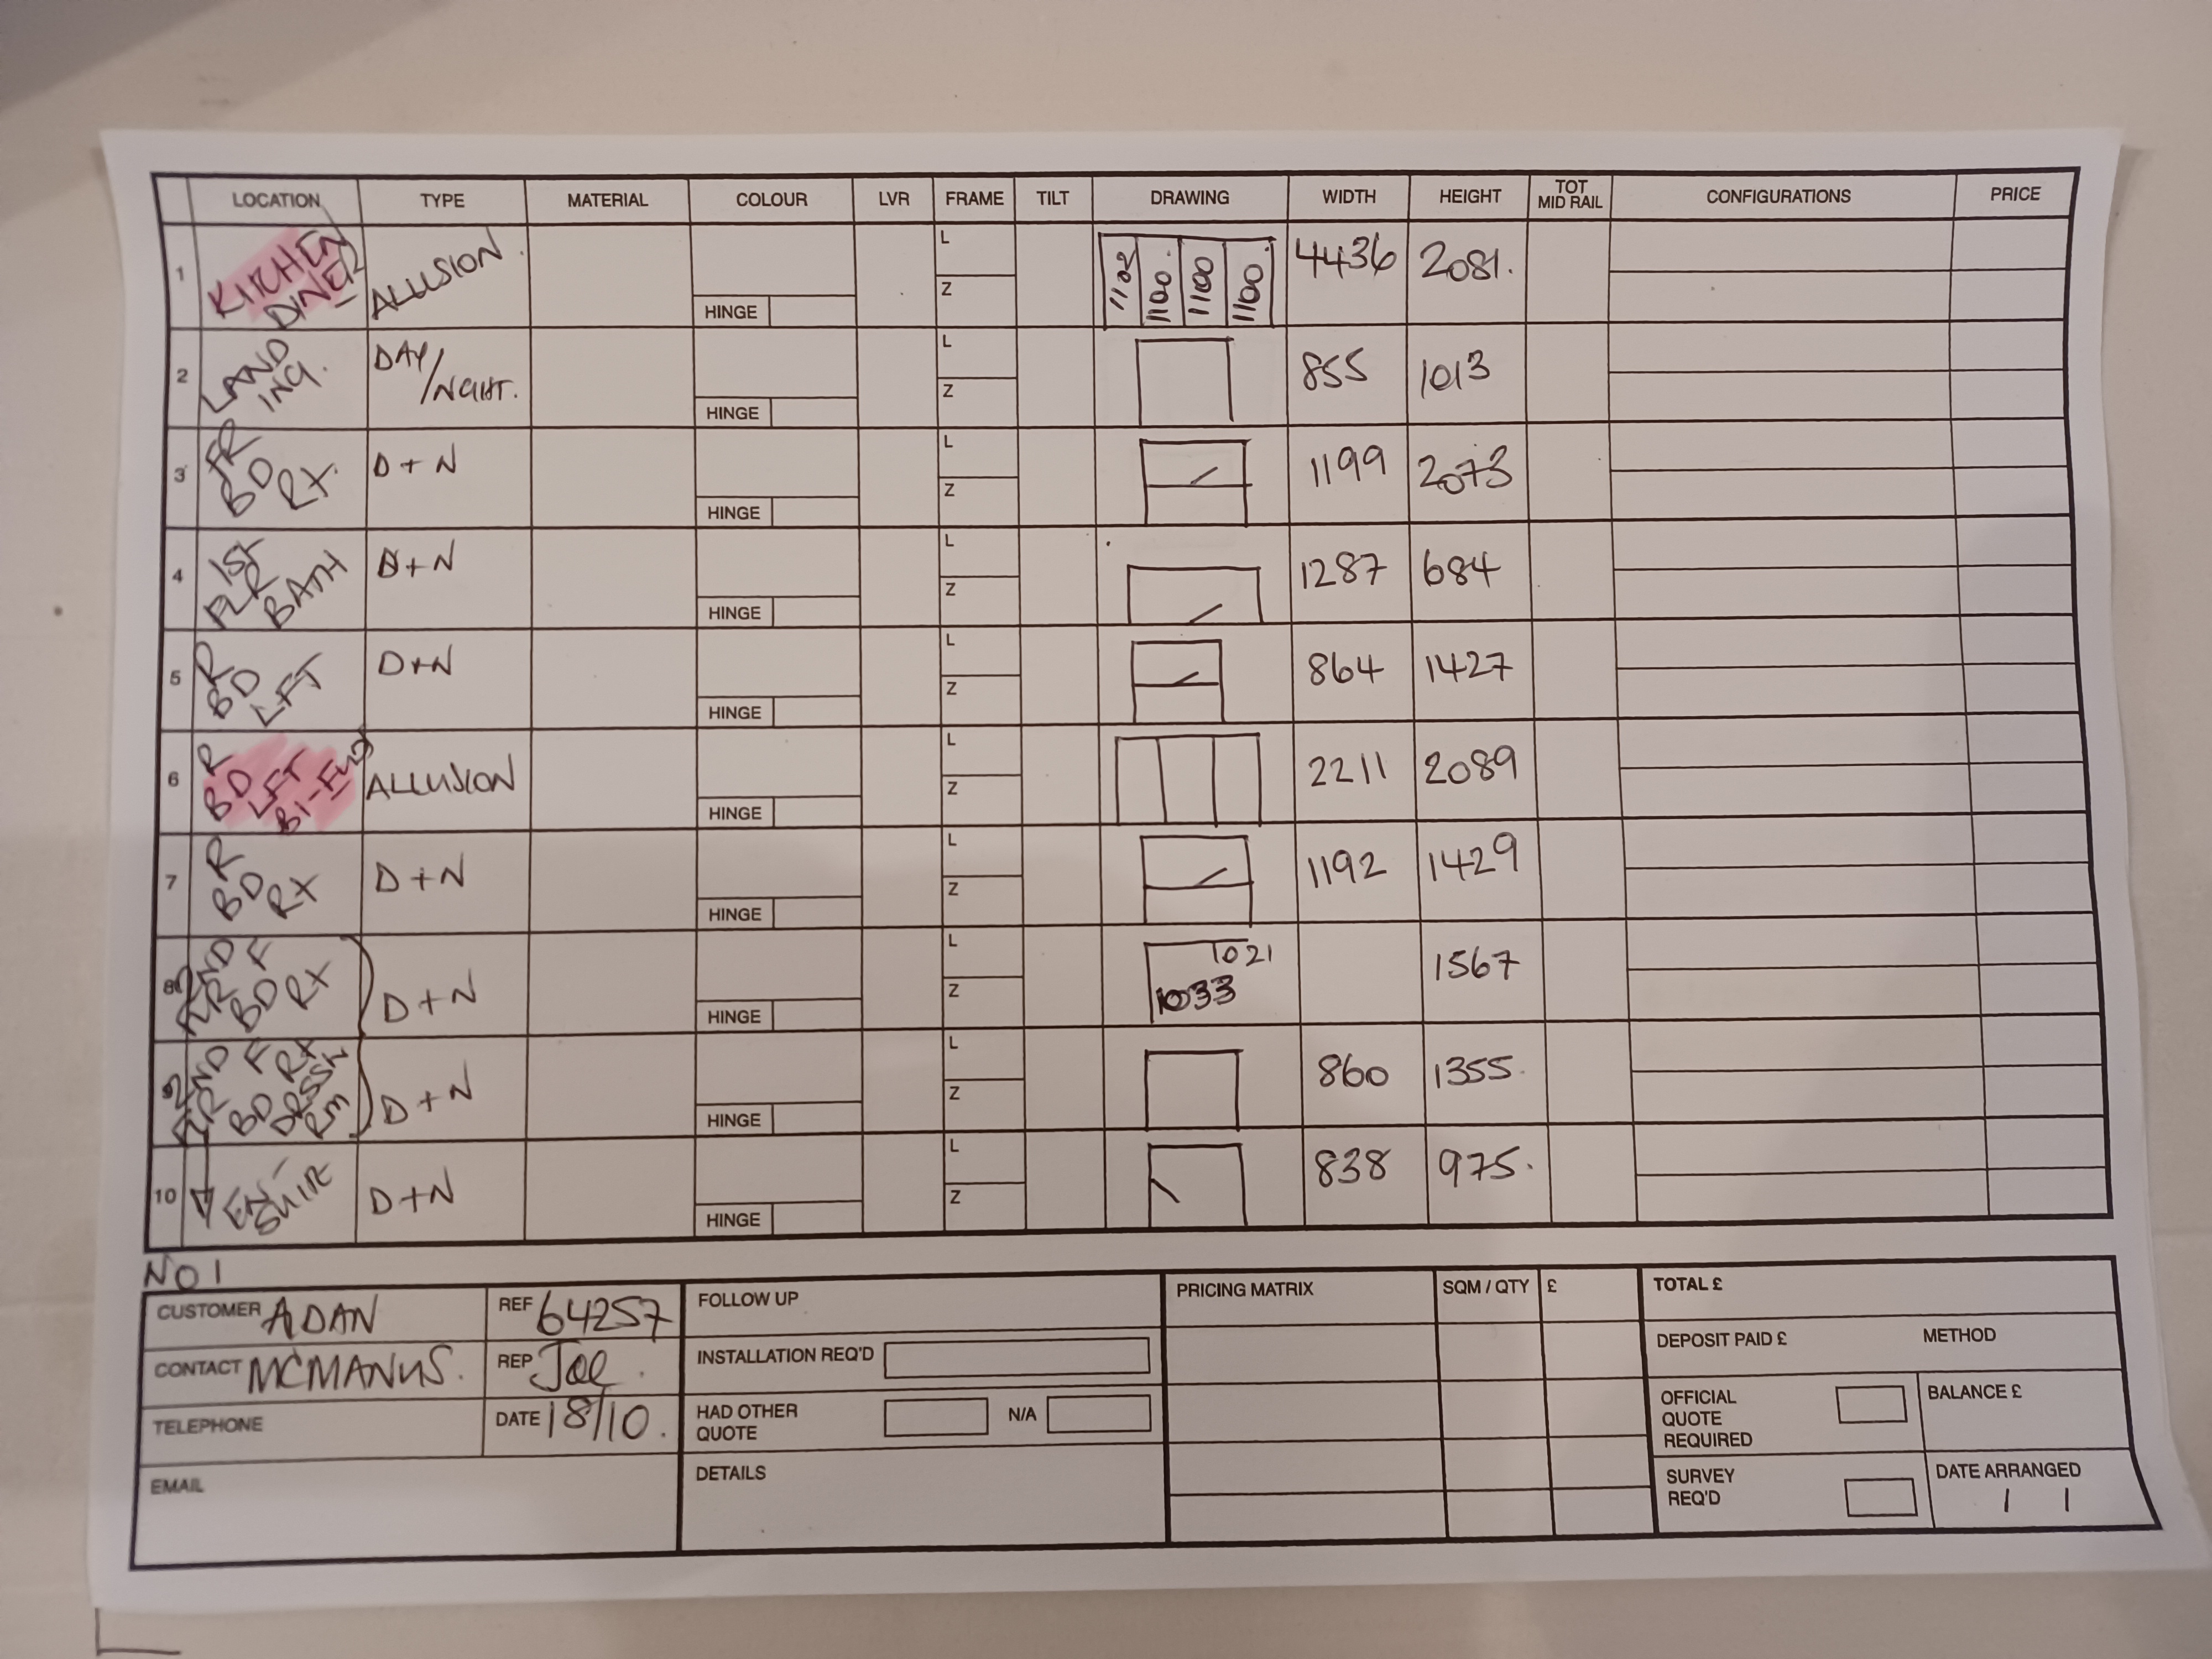 LOCATION TYPE MATERIAL COLOUR LVR FRAME TILT DRAWING WIDTH HEIGHT TOT MID RAIL CONFIGURATIONS PRICE
1 KITCHEN DINER ALLUSION. HINGE L Z 1102 1100. 1100 1100. 4436 2081.
2 LANDING. DAY/NGHT. HINGE L Z 855 1013
3 FR BD RX. D+N HINGE L Z 1199 2073
4 1ST FLR BATH D+N HINGE L Z 1287 684
5 R BD LFT D+N HINGE L Z 864 1427
6 R BD LFT BI-FLD ALLUSION HINGE L Z 2211 2089
7 R BD RX D+N HINGE L Z 1192 1429
8 2ND FLR F BD RX D+N HINGE L Z 1021 1033 1567
9 2ND FLR F RX BD RM D+N HINGE L Z 860 1355.
10 EN-SUIR D+N HINGE L Z 838 975.
NO1
CUSTOMER ADAN REF 64257 FOLLOW UP PRICING MATRIX SQM / QTY £ TOTAL £
CONTACT MCMANUS. REP Joe. INSTALLATION REQ'D DEPOSIT PAID £ METHOD
TELEPHONE DATE 18/10. HAD OTHER QUOTE N/A OFFICIAL QUOTE REQUIRED BALANCE £
EMAIL DETAILS SURVEY REQ'D DATE ARRANGED / /